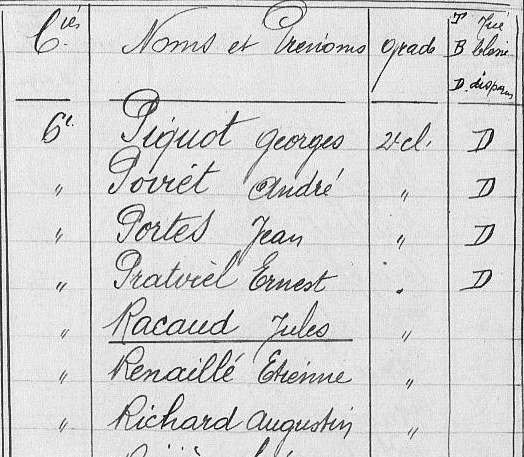 Cies Noms et Prénoms grade T Tué
B blessé
D. disparu
6e Piquot Georges 2e cl. D
" Poviét André " D
" Portes Jean " D
" Pratviel Ernest " D
" Racaud Jules "
" Renaillé Etienne "
" Richard Augustin "